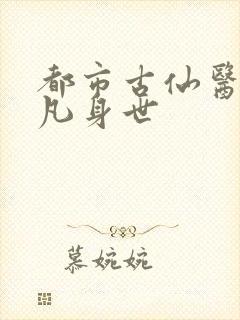 都市古仙醫
凡身世
慕婉婉